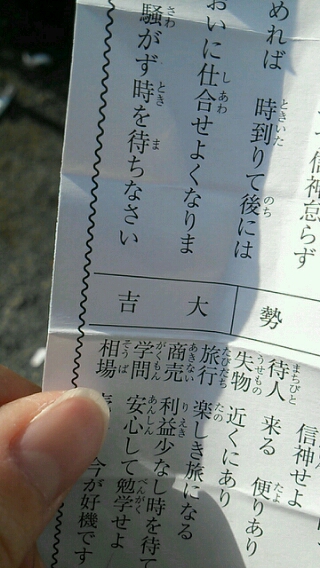 信神怠らず
めれば 時到りて後には
おいに仕合せよくなりま
騒がず時を待ちなさい
勢
大吉
信神せよ
待人 来る 便りあり
失物 近くにあり
旅行 楽しき旅になる
商売 利益少なし時を待て
学問 安心して勉学せよ
相場 今が好機です